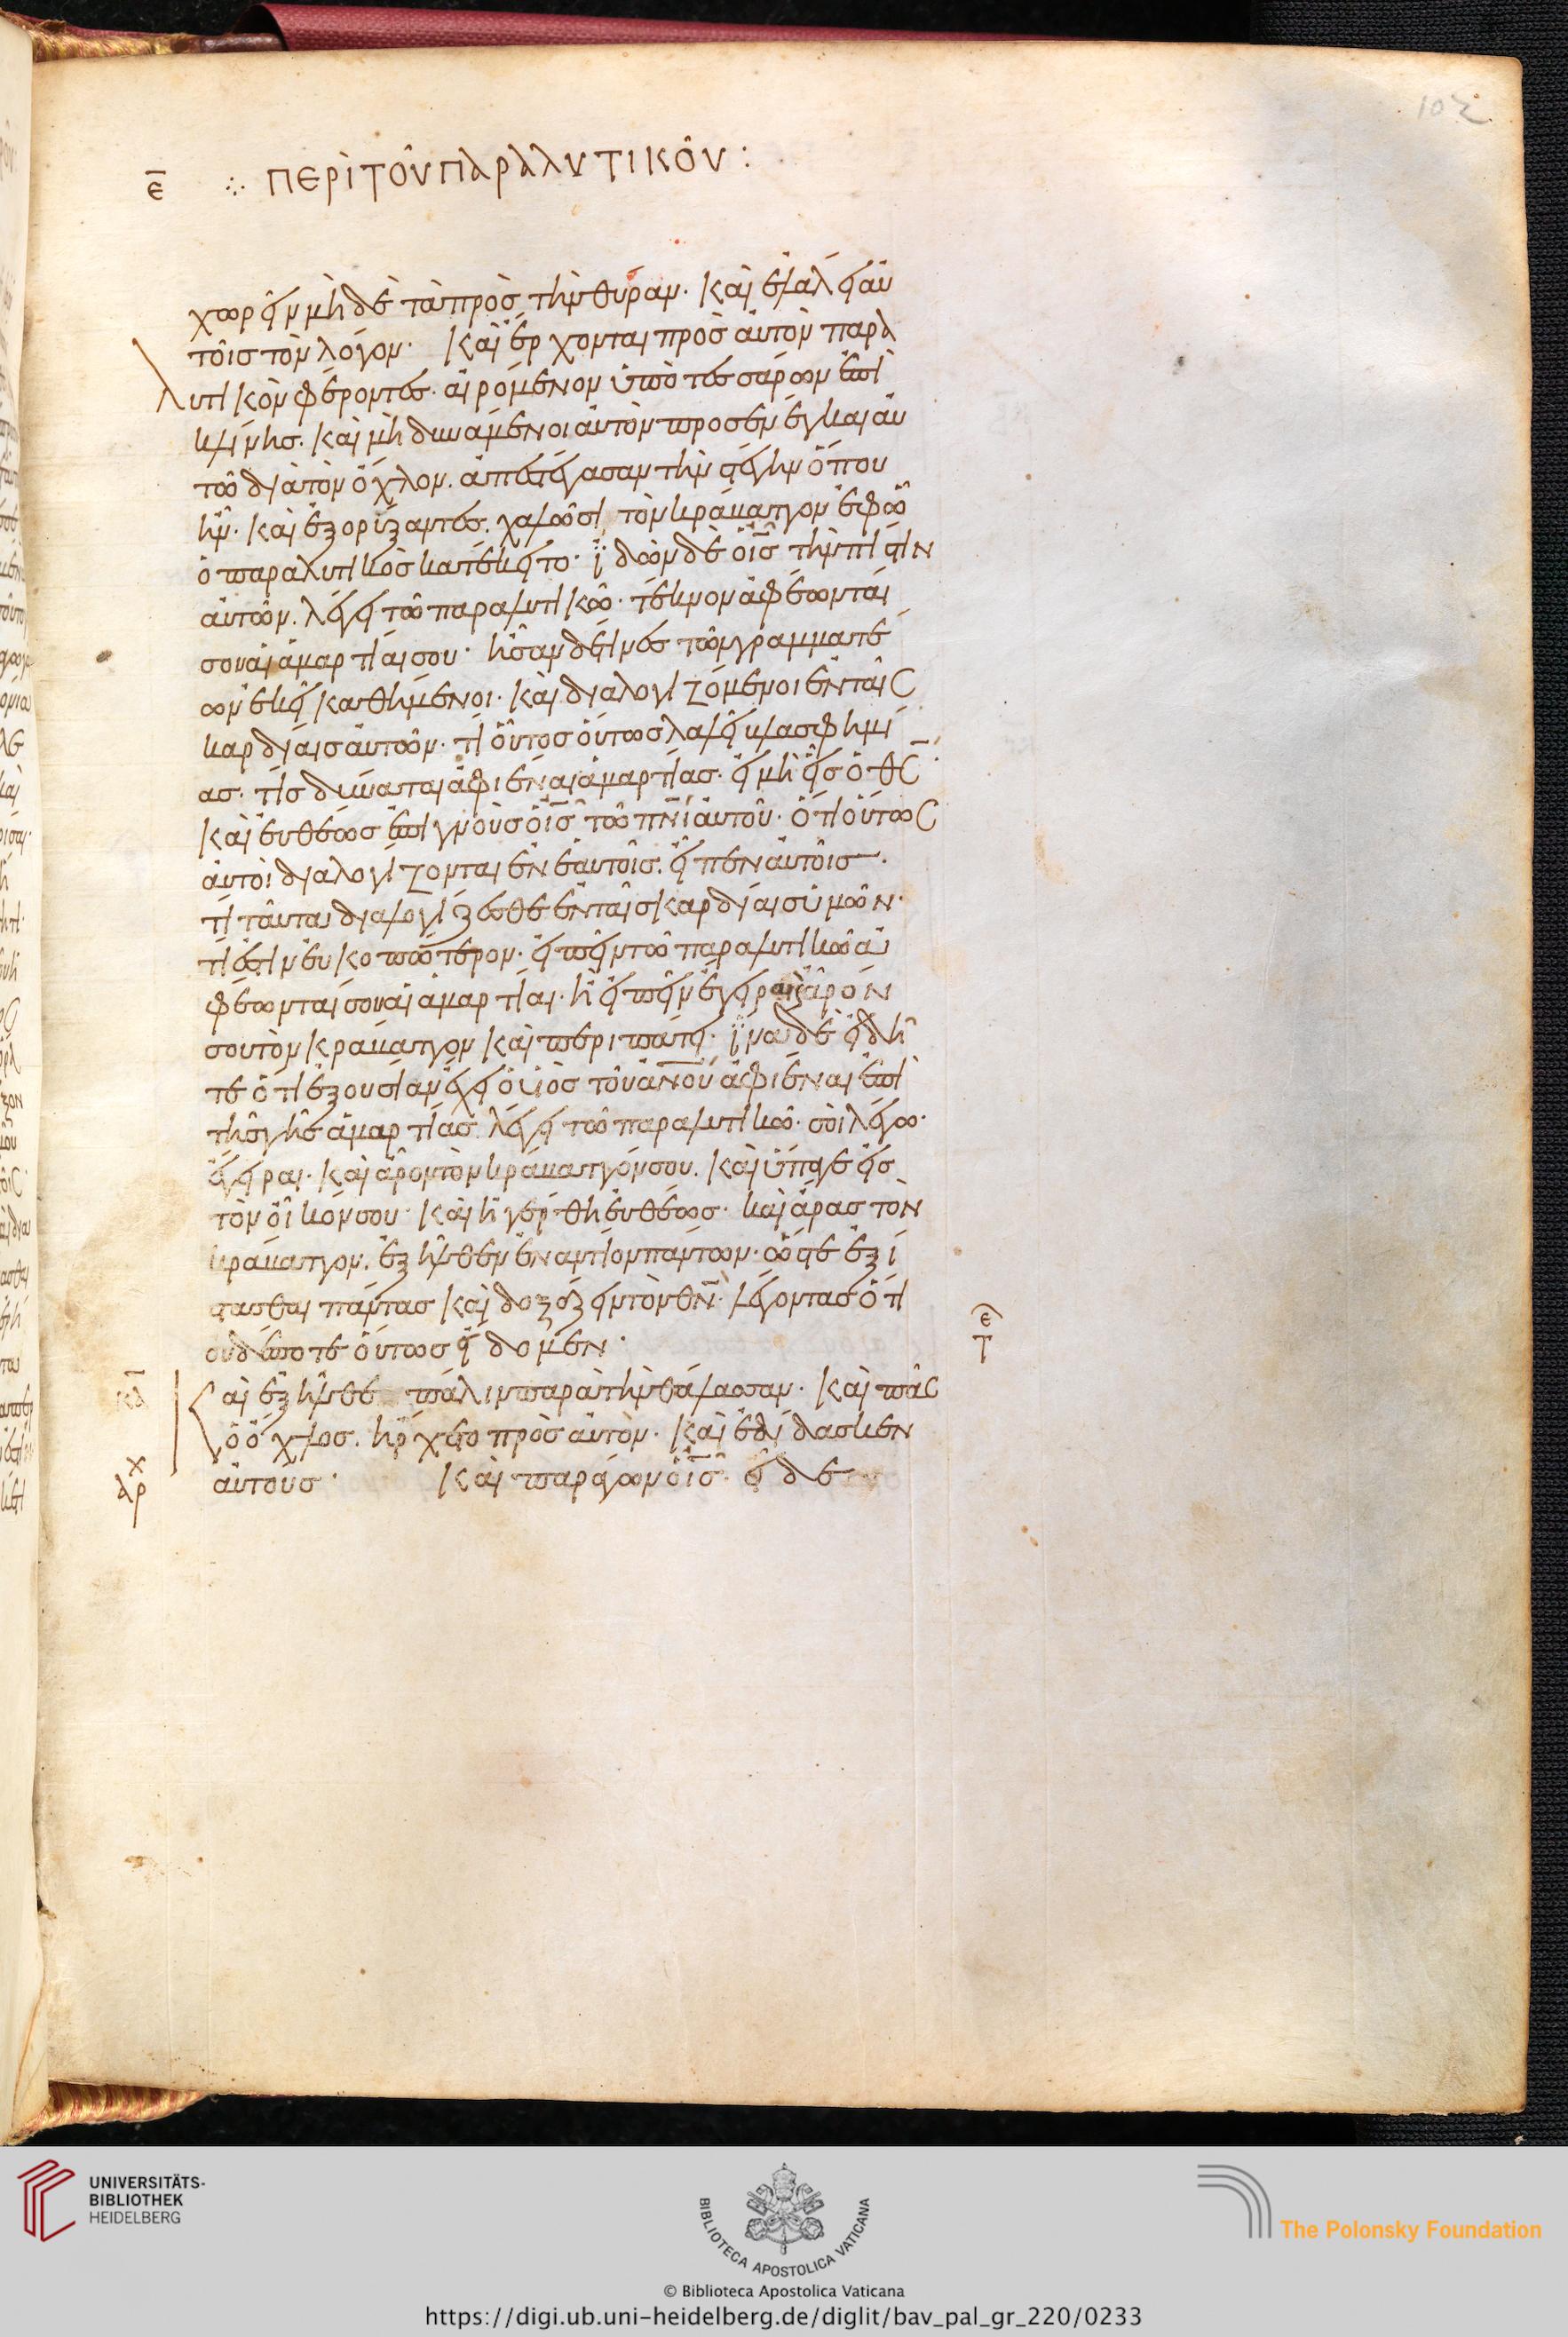 102
ε̅ ⁘ ΠΕΡῚ ΤΟΥ͂ ΠΑΡΑΛΥΤΙΚΟΥ͂ :
χωρεῖν μὴ δὲ τὰ πρὸσ τὴν θύραν· καὶ ἐλάλει αὐ
τοῖσ τὸν λόγον· Καὶ ἔρχονται πρὸσ αὐτὸν παρα
λυτικὸν φέροντεσ· αἰρόμενον ὑπὸ τεσσάρων ἐπὶ
κλίνησ. καὶ μὴ δυνάμενοι αὐτὸν προσενέγκαι αὐ
τῶ διὰ τὸν ὄχλον. ἀπεστέγασαν τὴν στέγην ὅπου
ἦν· καὶ ἐξορύξαντεσ. χαλῶσι τὸν κράβαττον ἐφ ὧ
ὁ παραλυτικὸσ κατέκειτο· ἰδὼν δὲ ὁ ι̅σ̅ τὴν πίστιν
αὐτῶν. λέγει τῶ παραλυτικῶ· τέκνον ἀφέωνταί
σου αἱ ἁμαρτίαι σου· ἦσαν δέ τινεσ τῶν γραμματέ
ων ἐκεῖ καθήμενοι· καὶ διαλογιζόμενοι ἐν ταῖσ
καρδίαισ αὐτῶν· τί οὗτοσ οὕτωσ λαλεῖ βλασφημί
ασ· τίσ δύναται ἀφιέναι ἁμαρτίασ· εἰ μὴ εἷσ ὁ θ̅σ̅·
καὶ εὐθέωσ ἐπιγνοὺσ ὁ ι̅σ̅ τῶ π̅ν̅ι̅ αὐτοῦ· ὅτι οὕτωσ
αὐτοὶ διαλογίζονται ἐν ἑαυτοῖσ. εἶπεν αὐτοῖσ·
τί ταῦτα διαλογίζεσθε ἐν ταῖσ καρδίαισ ὑμῶν·
τί ἐστιν εὐκοπώτερον· εἰπεῖν τῶ παραλυτικῶ ἀ
φέωνταί σου αἱ ἁμαρτίαι· ἢ εἰπεῖν ἔγειραι καὶ ἆρόν
σου τὸν κράβαττον καὶ περιπάτει· ἵνα δὲ εἰδῆ
τε ὅτι ἐξουσίαν ἔχει ὁ υἱὸσ τοῦ α̅ν̅ο̅υ̅ ἀφιέναι ἐπὶ
τῆσ γῆσ ἁμαρτίασ. λέγει τῶ παραλυτικῶ· σοὶ λέγω·
ἔγειραι· καὶ ἆρον τὸν κράβαττόν σου. καὶ ὕπαγε εἰσ
τὸν οἶκόν σου· καὶ ἠγέρθη εὐθέωσ· καὶ ἄρασ τὸν
κράβαττον. ἐξῆλθεν ἐναντίον πάντων· ὥστε ἐξί
στασθαι πάντασ καὶ δοξάζειν τὸν θ̅ν̅· λέγοντασ ὅτι
οὐδέποτε οὕτωσ εἴδομεν·
ε
τ
κα̅ Καὶ ἐξῆλθε πάλιν παρὰ τὴν θάλασσαν· καὶ πᾶσ
ὁ ὄχλοσ. ἤρχετο πρὸσ αὐτὸν· καὶ ἐδίδασκεν
αρχ αὐτούσ· Καὶ παράγων ὁ ι̅σ̅ εἶδε
UNIVERSITÄTS-
BIBLIOTHEK
HEIDELBERG
BIBLIOTECA APOSTOLICA VATICANA
The Polonsky Foundation
© Biblioteca Apostolica Vaticana
https://digi.ub.uni-heidelberg.de/diglit/bav_pal_gr_220/0233